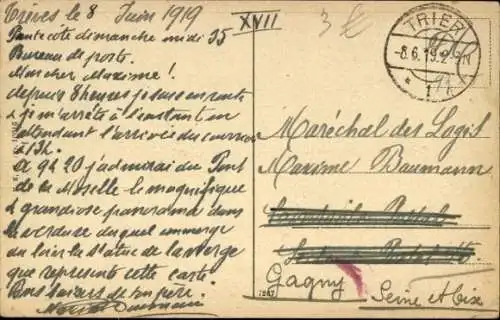 Trèves le 8 Juin 1919
Pentecôte dimanche midi 35
Bureau de poste.
Mon cher Maxime!
depuis 8 heures je suis en route
& je m'arrête à l'instant en
attendant l'arrivée du courrier
à 13h.
A 9h 20 j'admirai du Pont
de la Moselle le magnifique
& grandiose panorama dans
la verdure duquel émerge
au loin la Statue de la Vierge
que représente cette carte.
Bons baisers de ton père.
Baumann
XVII
3 €
TRIER
-8.6.19.2-3N
* 1 k
Maréchal des Logis
Maxime Baumann
Gagny
Seine et Oise